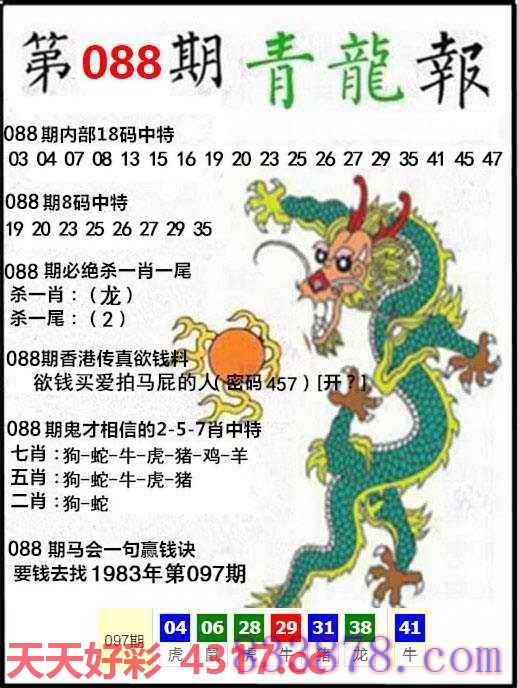 第088期青龍報
088期内部18码中特
03 04 07 08 13 15 16 19 20 23 25 26 27 29 35 41 45 47
088期8码中特
19 20 23 25 26 27 29 35
088期必绝杀一肖一尾
杀一肖:(龙)
杀一尾:(2)
088期香港传真欲钱料
欲钱买爱拍马屁的人(密码457)[开?]
088期鬼才相信的2-5-7肖中特
七肖:狗-蛇-牛-虎-猪-鸡-羊
五肖:狗-蛇-牛-虎-猪
二肖:狗-蛇
088期马会一句赢钱诀
要钱去找1983年第097期
097期 04 06 28 29 31 38 41
虎 鼠 虎 牛 猪 龙 牛
天天好彩-4317.cc